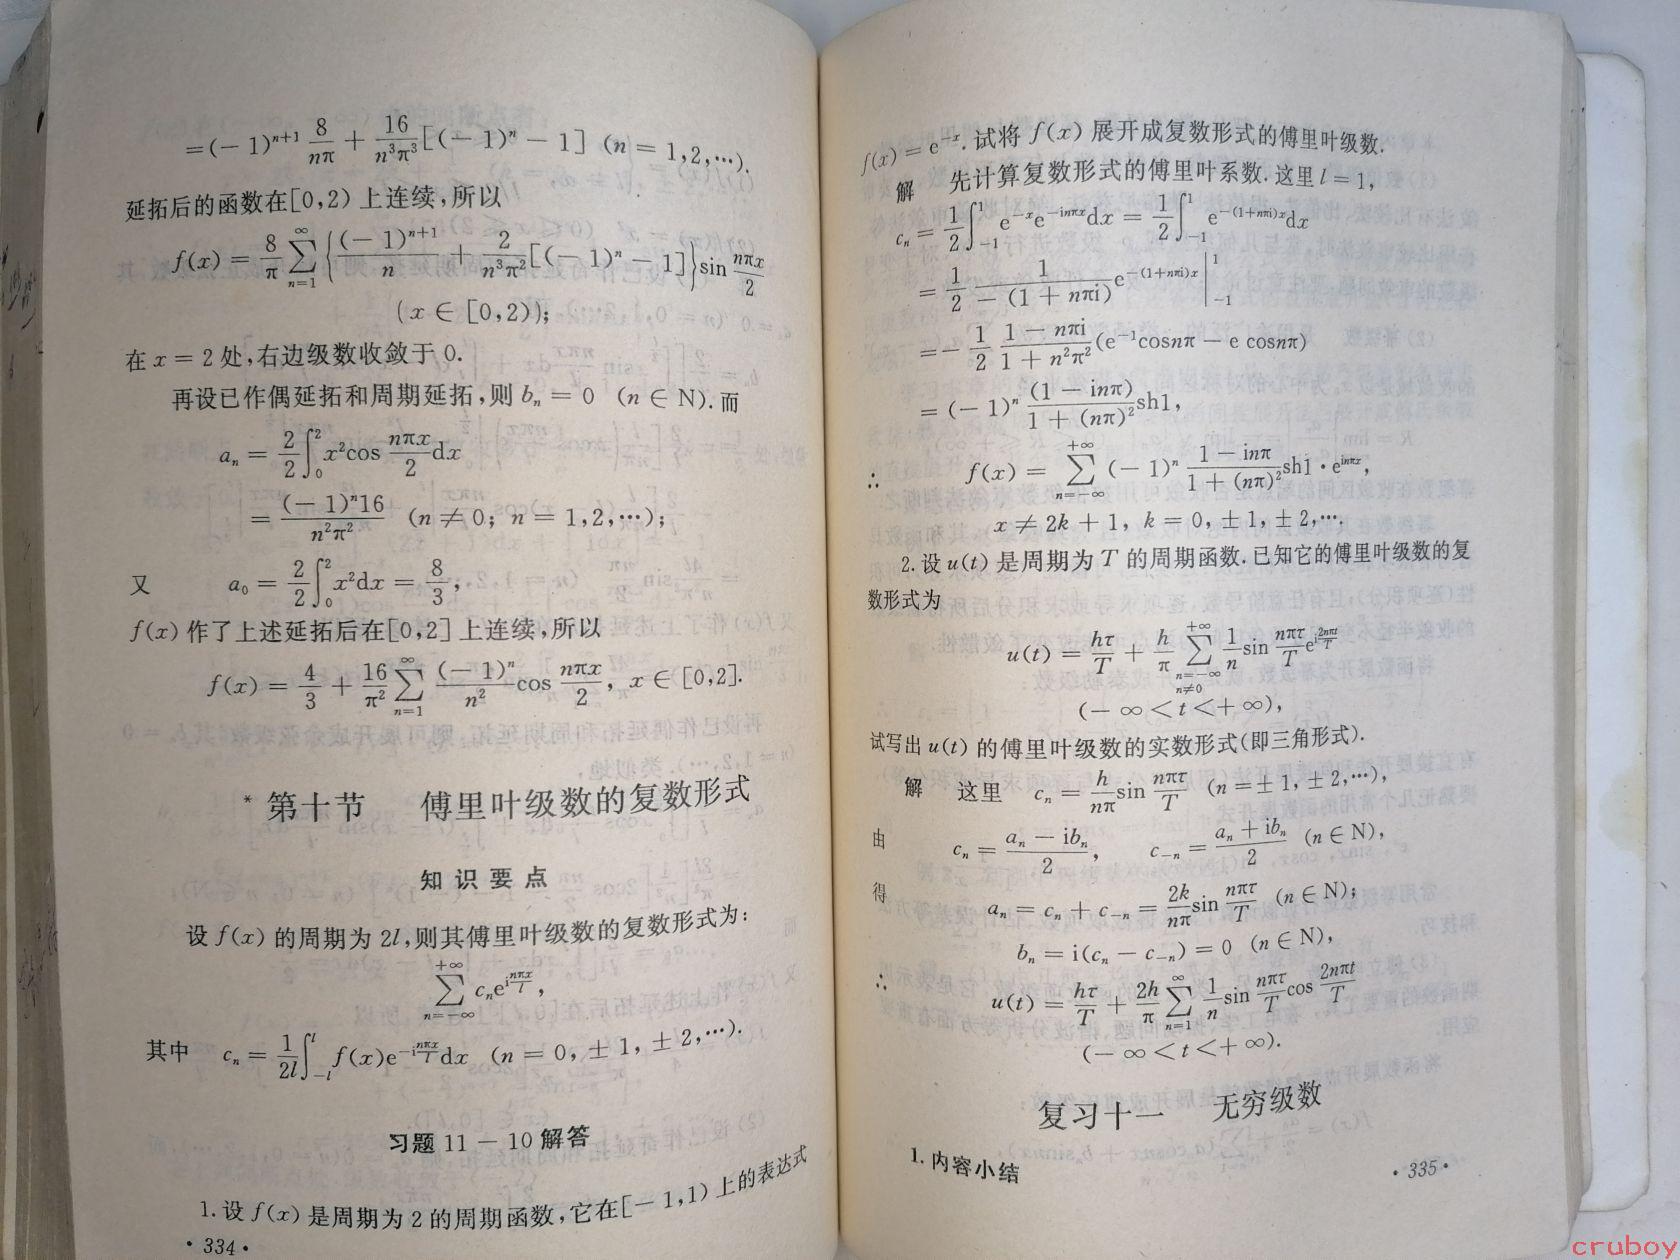 =(-1)ⁿ⁺¹ 8/nπ + 16/n³π³[(-1)ⁿ-1] (n=1,2,…).
延拓后的函数在[0,2)上连续,所以
f(x) = 8/π ∑_{n=1}^{∞} {(-1)ⁿ⁺¹/n + 2/n³π²[(-1)ⁿ-1]} sin nπx/2
(x∈[0,2));
在 x=2 处,右边级数收敛于 0.
再设已作偶延拓和周期延拓,则 bₙ=0 (n∈N).而
aₙ = 2/2 ∫₀² x²cos nπx/2 dx
= (-1)ⁿ16/n²π² (n≠0; n=1,2,…);
又 a₀ = 2/2 ∫₀² x²dx = 8/3,
f(x)作了上述延拓后在[0,2]上连续,所以
f(x) = 4/3 + 16/π² ∑_{n=1}^{∞} (-1)ⁿ/n² cos nπx/2, x∈[0,2].
*第十节 傅里叶级数的复数形式
知识要点
设 f(x) 的周期为 2l,则其傅里叶级数的复数形式为:
∑_{n=-∞}^{+∞} cₙe^{i nπx/l},
其中 cₙ = 1/2l ∫_{-l}^{l} f(x)e^{-i nπx/l}dx (n=0,±1,±2,…).
习题 11-10 解答
1.设 f(x) 是周期为 2 的周期函数,它在[-1,1)上的表达式
·334·
f(x)=e⁻ˣ.试将 f(x) 展开成复数形式的傅里叶级数.
解 先计算复数形式的傅里叶系数.这里 l=1,
cₙ = 1/2 ∫_{-1}^{1} e⁻ˣe^{-inπx}dx = 1/2 ∫_{-1}^{1} e^{-(1+nπi)x}dx
= 1/2 · 1/-(1+nπi) e^{-(1+nπi)x} |_{-1}^{1}
= -1/2 (1-nπi)/(1+n²π²) (e⁻¹cosnπ - e cosnπ)
= (-1)ⁿ (1-inπ)/(1+(nπ)²) sh1,
∴ f(x) = ∑_{n=-∞}^{+∞} (-1)ⁿ (1-inπ)/(1+(nπ)²) sh1·e^{inπx},
x≠2k+1, k=0,±1,±2,….
2.设 u(t) 是周期为 T 的周期函数.已知它的傅里叶级数的复
数形式为
u(t) = hτ/T + h/π ∑_{n=-∞, n≠0}^{+∞} 1/n sin nπτ/T e^{i 2nπt/T}
(-∞<t<+∞),
试写出 u(t) 的傅里叶级数的实数形式(即三角形式).
解 这里 cₙ = h/nπ sin nπτ/T (n=±1,±2,…),
由 cₙ = (aₙ-ibₙ)/2, c₋ₙ = (aₙ+ibₙ)/2 (n∈N),
得 aₙ = cₙ+c₋ₙ = 2k/nπ sin nπτ/T (n∈N);
bₙ = i(cₙ-c₋ₙ) = 0 (n∈N),
∴ u(t) = hτ/T + 2h/π ∑_{n=1}^{∞} 1/n sin nπτ/T cos 2nπt/T
(-∞<t<+∞).
复习十一 无穷级数
1.内容小结
·335·
cruboy